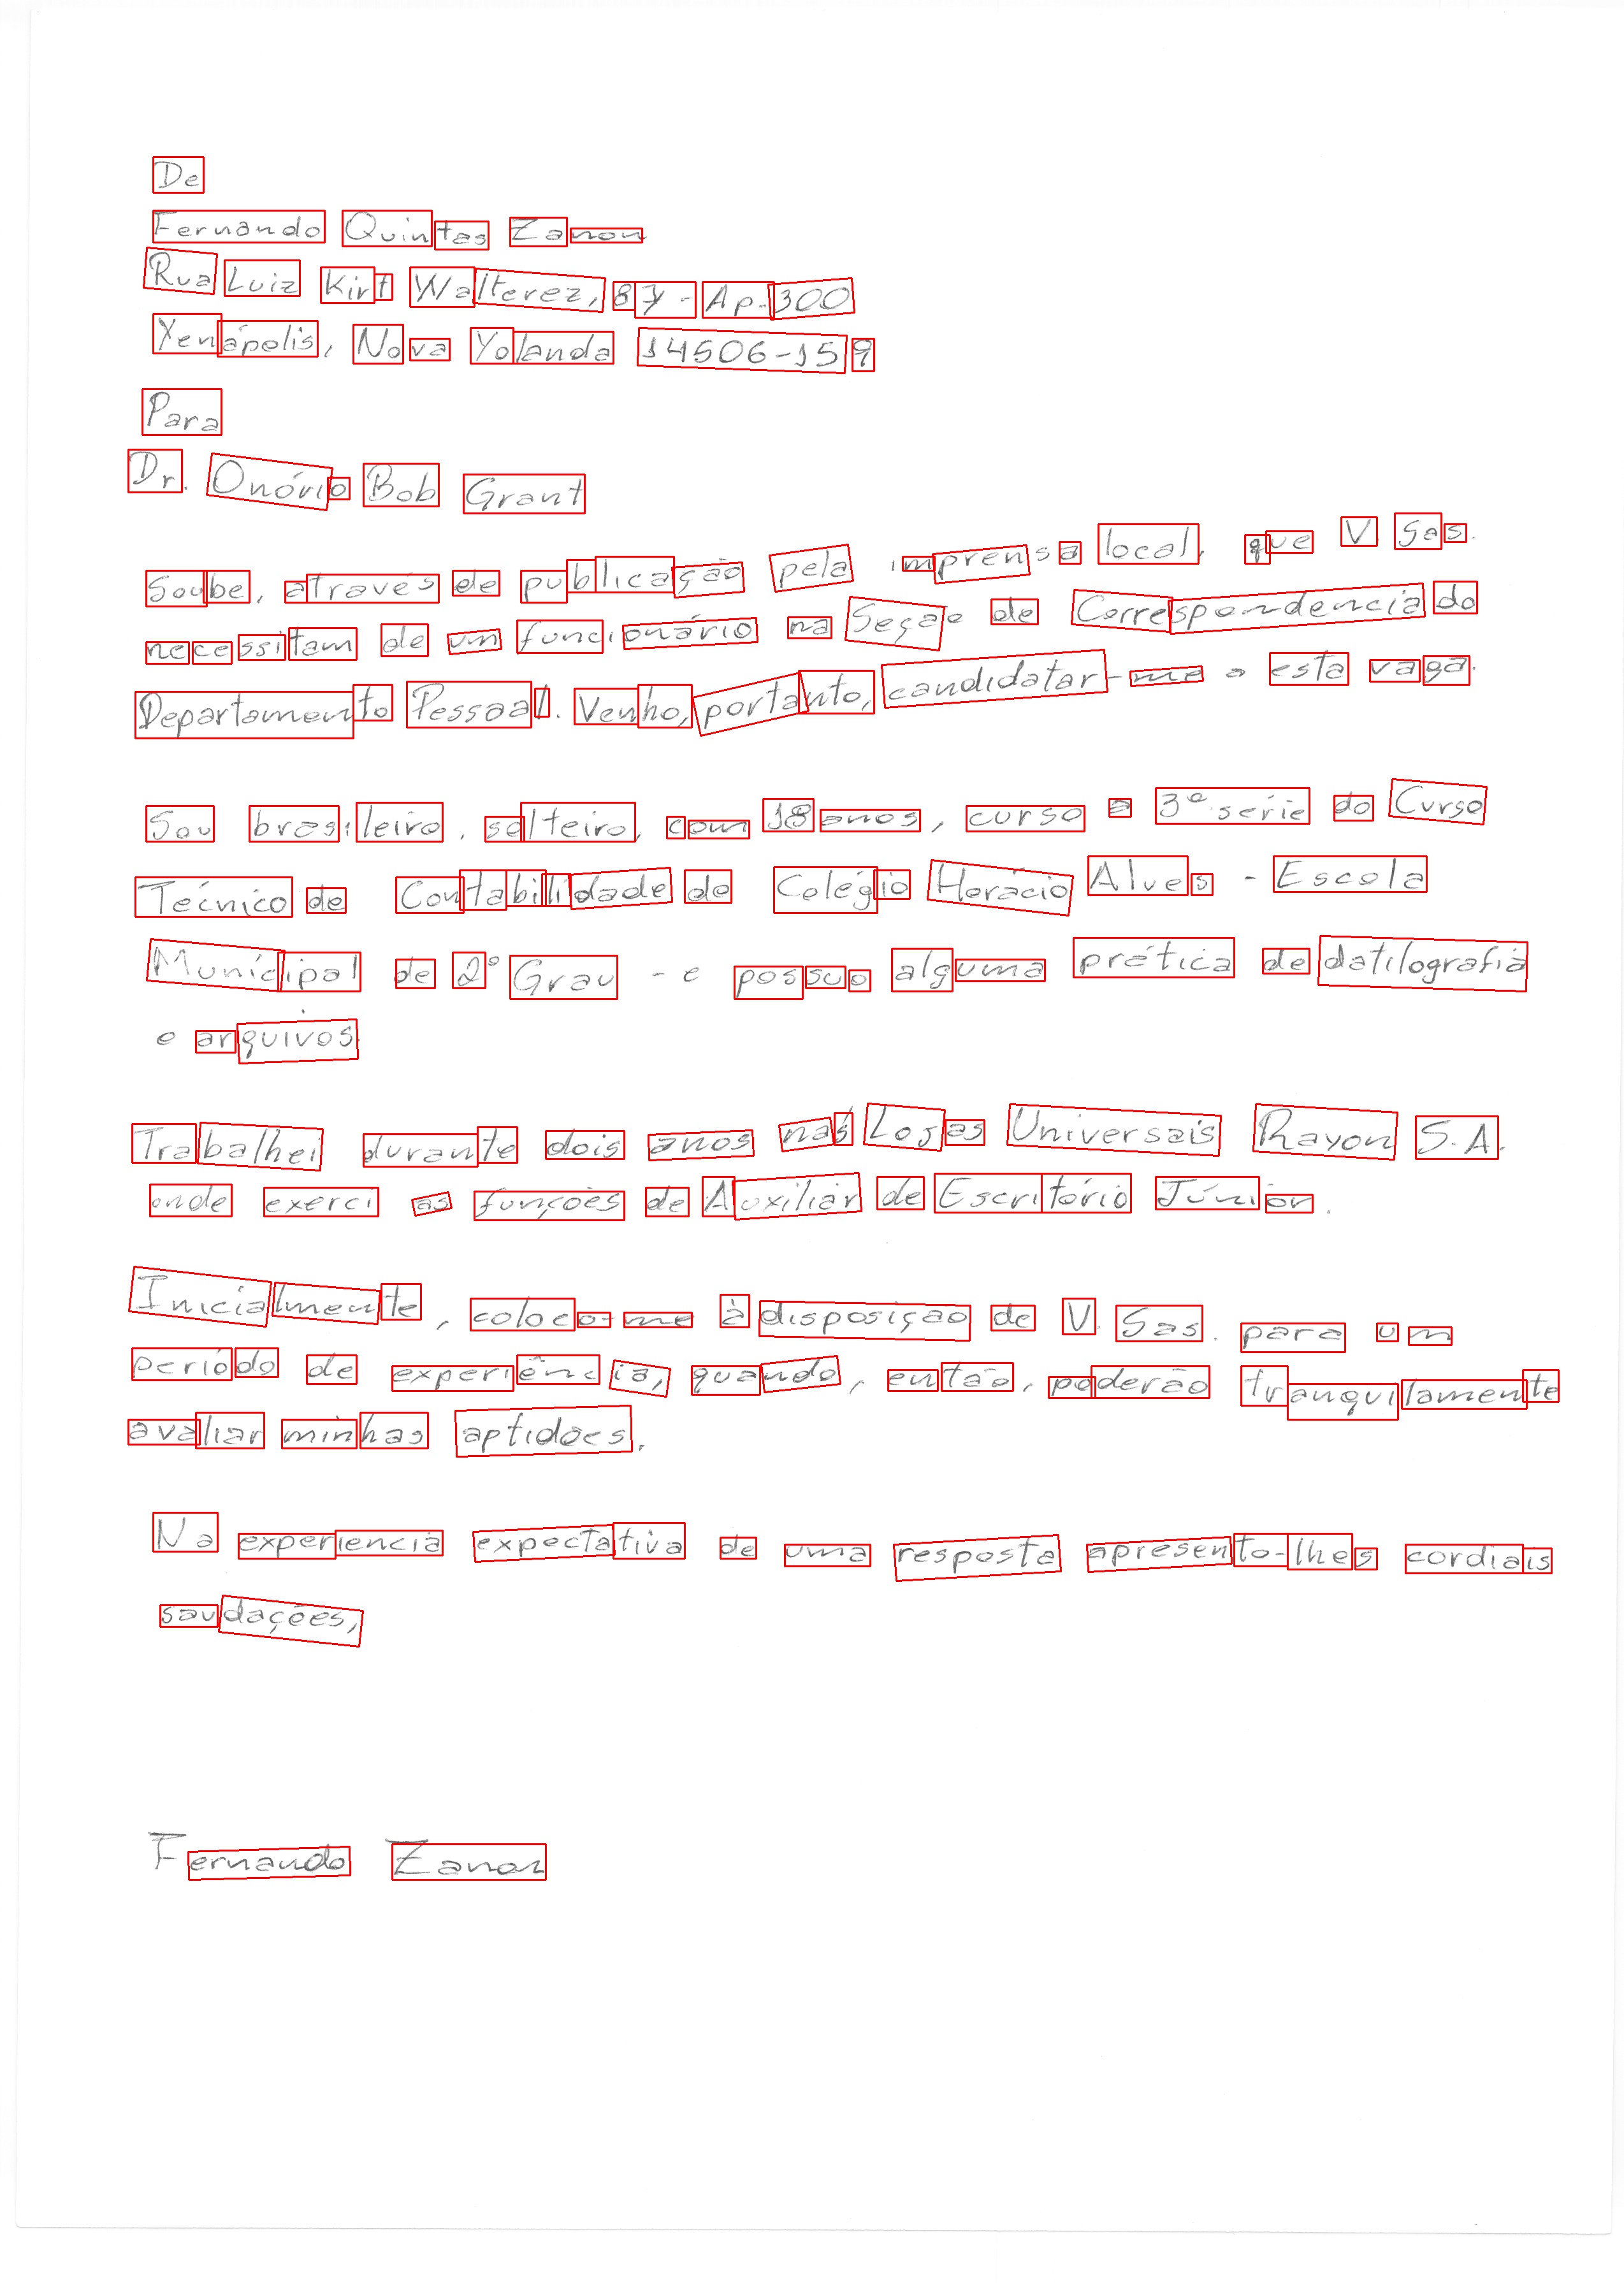 De
Fernando Quintas Zanon
Rua Luiz Kirt Walterez, 87 - Ap. 300
Xenápolis, Nova Yolanda 14506-159
Para
Dr. Onório Bob Grant
Soube, através de publicação pela imprensa local, que V. Sas.
necessitam de um funcionário na Seção de Correspondencia do
Departamento Pessoal. Venho, portanto, candidatar-me a esta vaga.
Sou brasileiro, solteiro, com 18 anos, curso a 3ª série do Curso
Técnico de Contabilidade do Colégio Horácio Alves - Escola
Municipal de 2º Grau - e possuo alguma prática de datilografia
e arquivos.
Trabalhei durante dois anos nas Lojas Universais Rayon S.A.
onde exerci as funções de Auxiliar de Escritório Júnior.
Inicialmente, coloco-me à disposição de V. Sas. para um
período de experiência, quando, então, poderão tranquilamente
avaliar minhas aptidões.
Na experiencia expectativa de uma resposta apresento-lhes cordiais
saudações,
Fernando Zanon